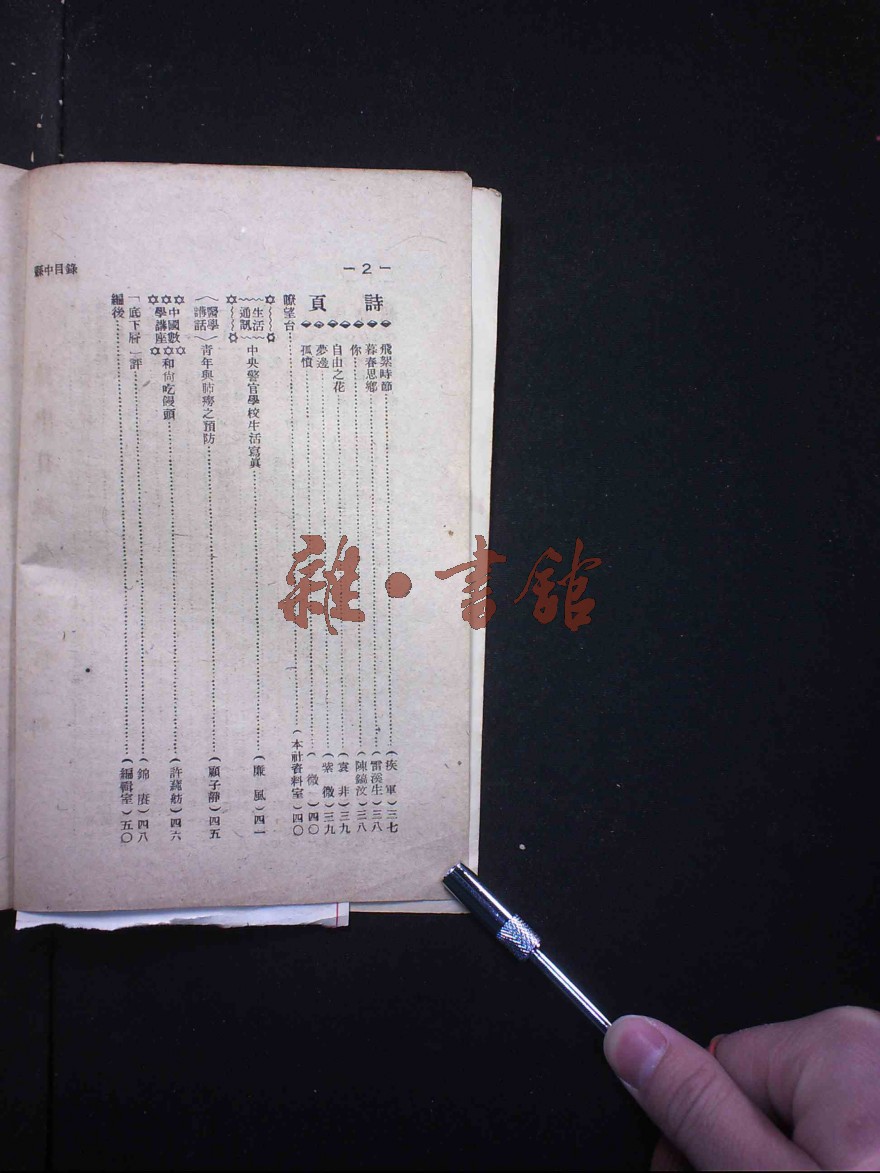 縣中目錄
—2—
詩頁
飛絮時節……(疾軍)三七
暮春思鄉……(雷溪生)三八
你……(陳鎬汶)三八
自由之花……(袁非)三九
夢邊……(紫微)三九
孤憤……(微)四〇
瞭望台……(本社資料室)四〇
生活通訊 中央警官學校生活寫眞……(廉風)四一
醫學講話 青年與肺癆之預防……(顧子靜)四五
中國數學講座 和尙吃饅頭……(許蒓舫)四六
「底下層」評……(錦賡)四八
編後……(編輯室)五〇
雜·書館